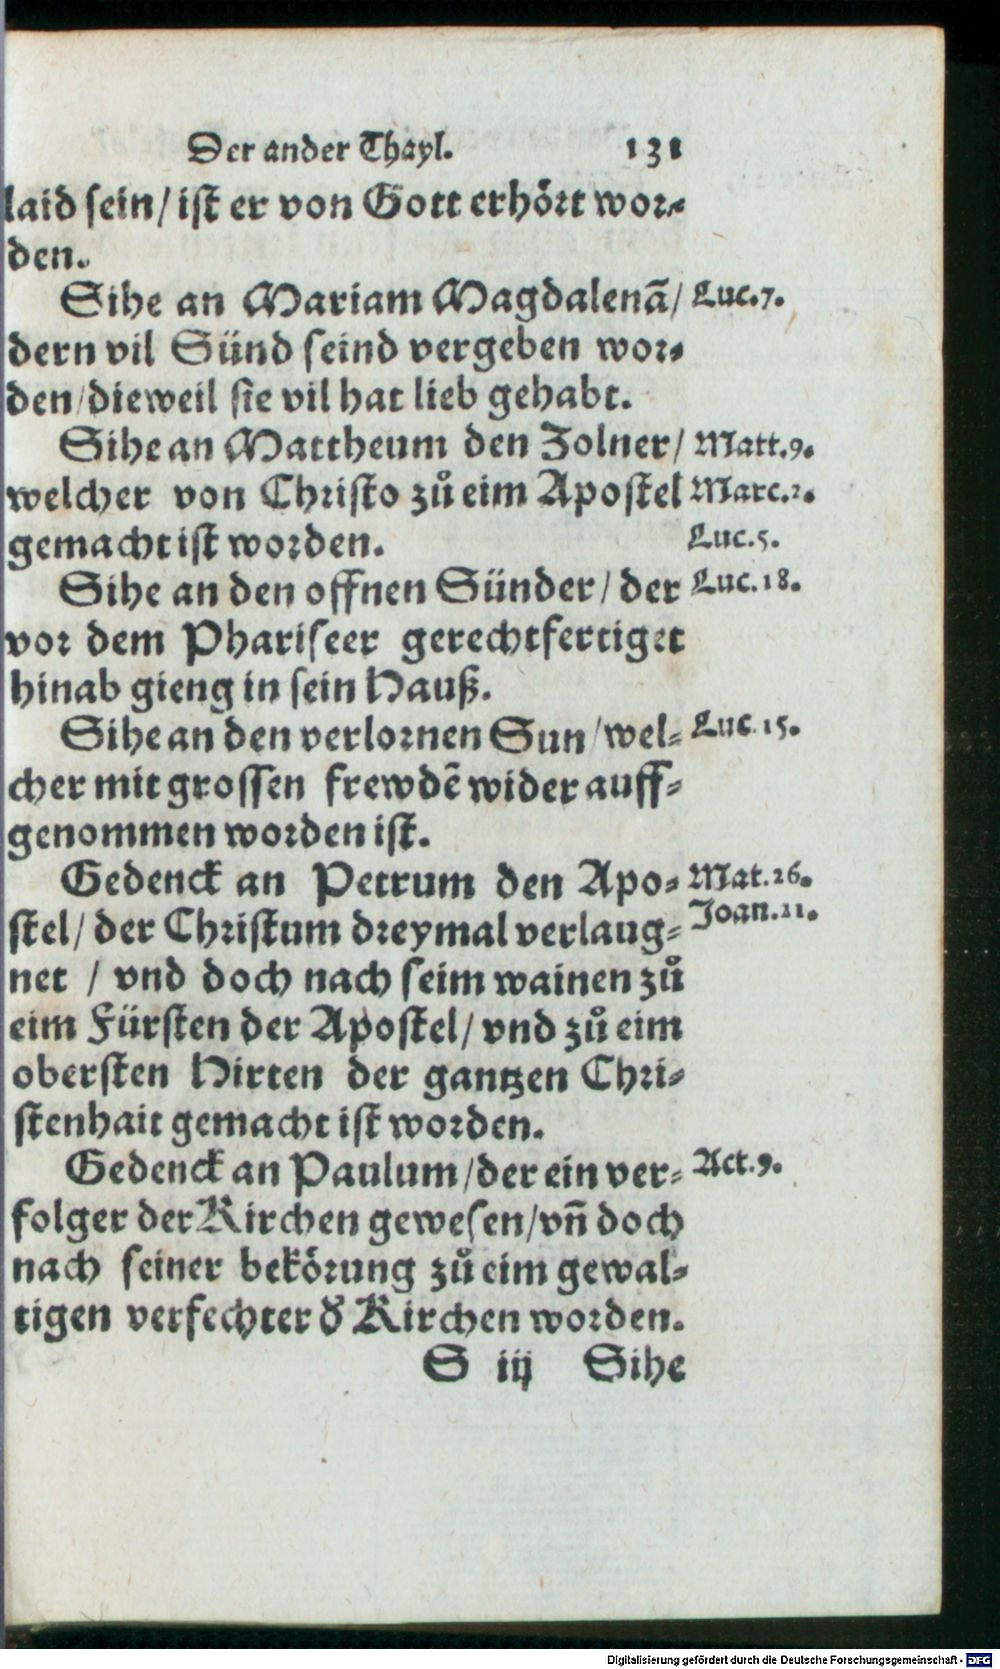 Der ander Thayl. 131
laid sein/ ist er von Gott erhört wor-
den.
Sihe an Mariam Magdalenā/ Luc.7.
dern vil Sünd seind vergeben wor-
den/dieweil sie vil hat lieb gehabt.
Sihe an Mattheum den Zolner/ Matt.9.
welcher von Christo zů eim Apostel Marc.2.
gemacht ist worden. Luc.5.
Sihe an den offnen Sünder/ der Luc.18.
vor dem Phariseer gerechtfertiget
hinab gieng in sein Hauß.
Sihe an den verlornen Sun/wel- Luc.15.
cher mit grossen frewdē wider auff-
genommen worden ist.
Gedenck an Petrum den Apo- Mat.26.
stel/ der Christum dreymal verlaug- Joan.21.
net / vnd doch nach seim wainen zů
eim Fürsten der Apostel/ vnd zů eim
obersten Hirten der gantzen Chri-
stenhait gemacht ist worden.
Gedenck an Paulum/der ein ver- Act.9.
folger der Kirchen gewesen/vn̄ doch
nach seiner bekörung zů eim gewal-
tigen verfechter d̕ Kirchen worden.
S iij Sihe
Digitalisierung gefördert durch die Deutsche Forschungsgemeinschaft - DFG